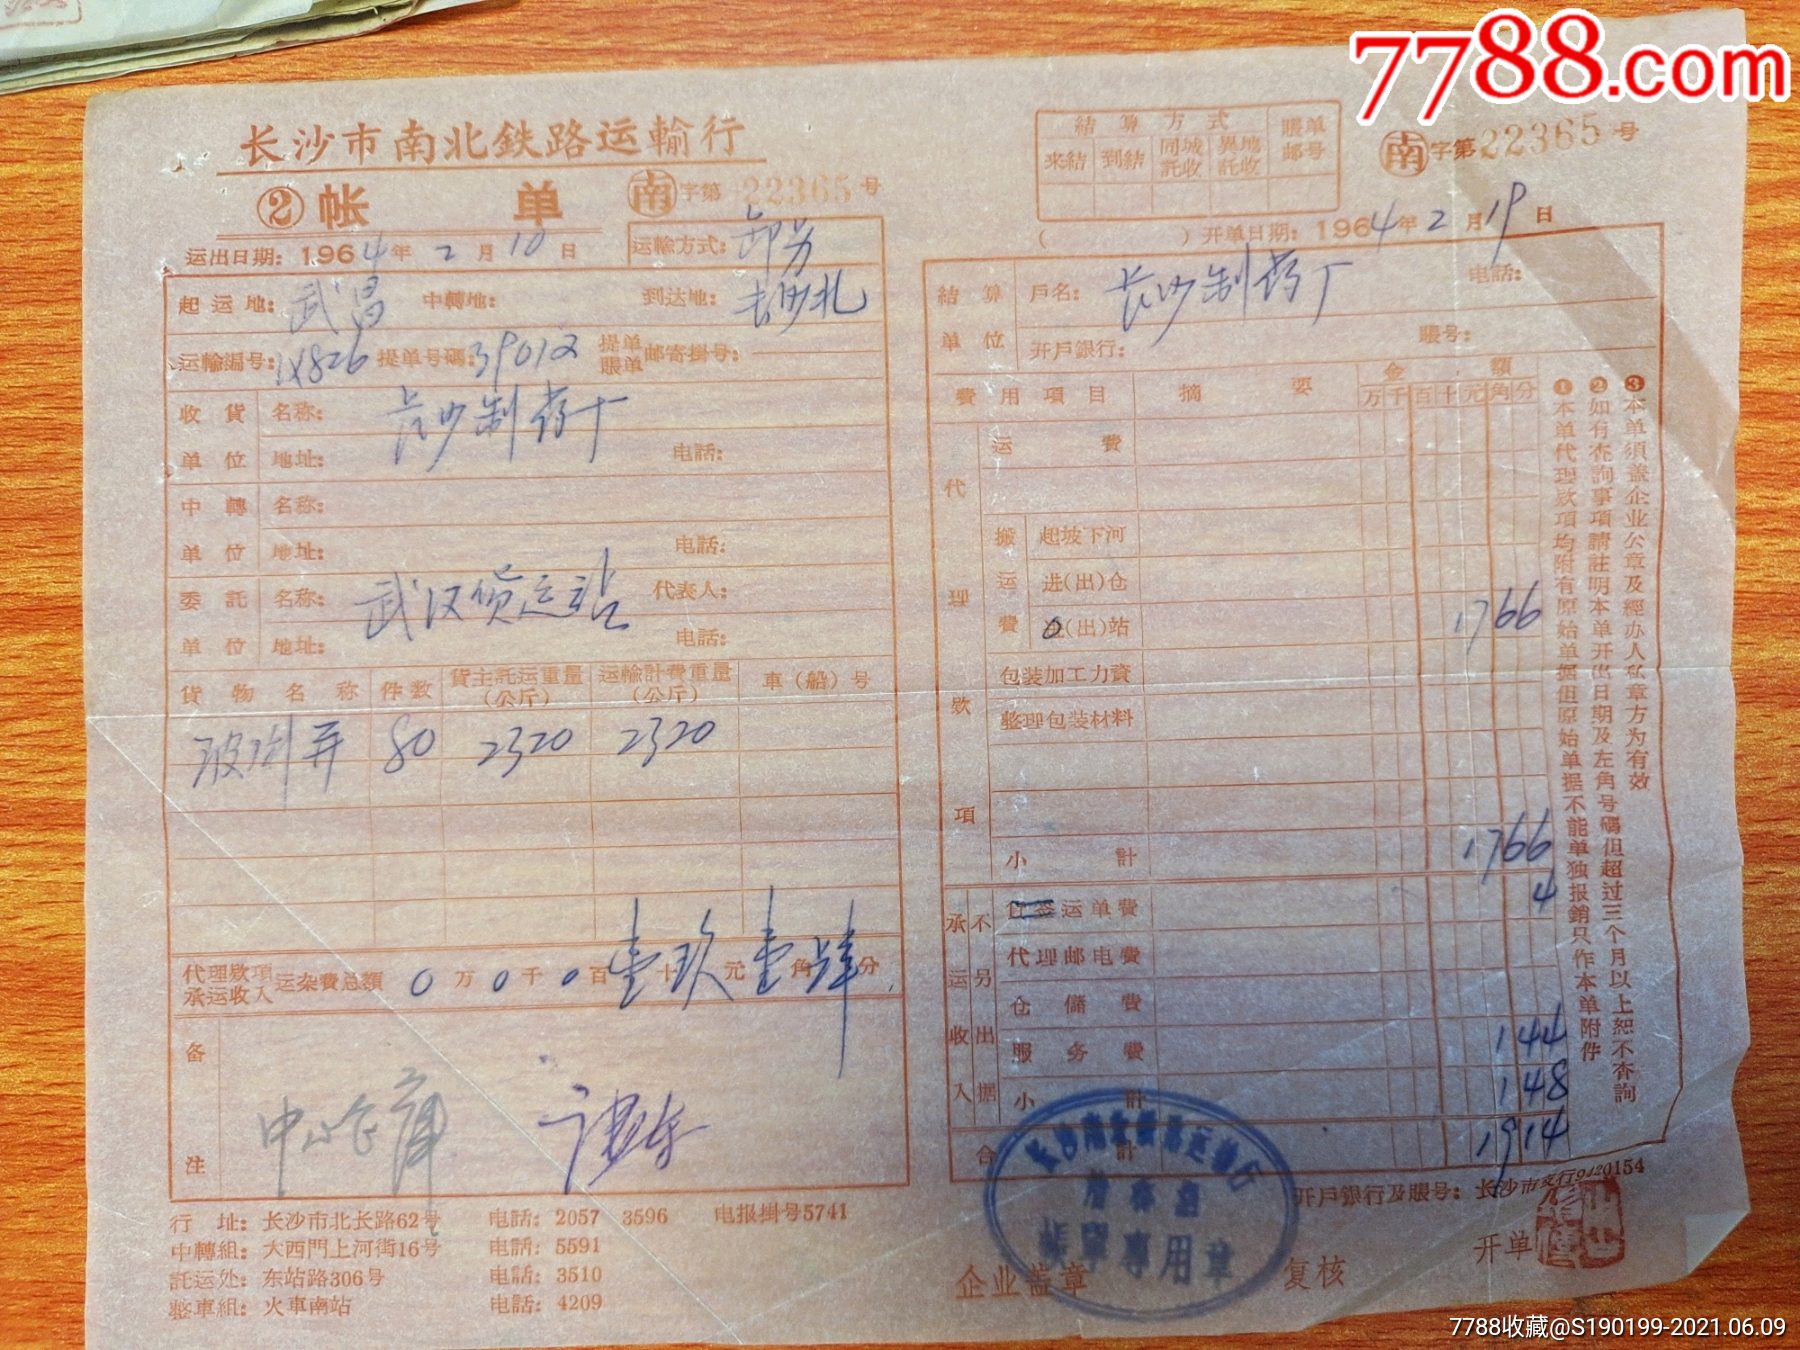 7788.com
长沙市南北鉄路运輸行
②帐 单
南 字第 22365 号
运出日期: 1964年 2 月 10 日
运輸方式:
起运地: 武昌 中轉地: 到达地: 长沙北
运輸編号: 1X826 提单号碼: 39012 提单賬单邮寄掛号:
收貨单位 名称: 长沙制药厂
地址: 电話:
中轉单位 名称:
地址: 电話:
委託单位 名称: 武汉货运站 代表人:
地址: 电話:
貨物名称 件数 貨主託运重量(公斤) 运輸計費重量(公斤) 車(船)号
80 2320 2320
代理欵項承运收入 运杂費总額 0 万 0 千 0 百 壹 十 玖 元 壹 角 肆 分
备注
中山仓库
行 址: 长沙市北长路62号 电話: 2057 3596 电报掛号5741
中轉組: 大西門上河街16号 电話: 5591
託运处: 东站路306号 电話: 3510
整車組: 火車南站 电話: 4209
結算方式 賬单邮号
来結 到結 同城託收 異地託收
南 字第22365号
( ) 开单日期: 1964年 2 月 19 日
結算单位 戶名: 长沙制药厂 电話:
开戶銀行: 賬号:
費用項目 摘要 金額
万千百十元角分
代理欵項
运費
搬运費 起坡下河
进(出)仓
(出)站 1766
包装加工力資
整理包装材料
小計 1766
承运收入 不另出据
运单費 4
代理邮电費
仓儲費
服务費 144
小計 148
合計 1914
❶本单代理欵項均附有原始单据但原始单据不能单独报銷只作本单附件
❷如有查詢事項請註明本单开出日期及左角号碼但超过三个月以上恕不查詢
❸本单須盖企业公章及經办人私章方为有效
开戶銀行及賬号: 长沙市支行0420154
帐單專用章
企业盖章 复核 开单
7788收藏@S190199-2021.06.09